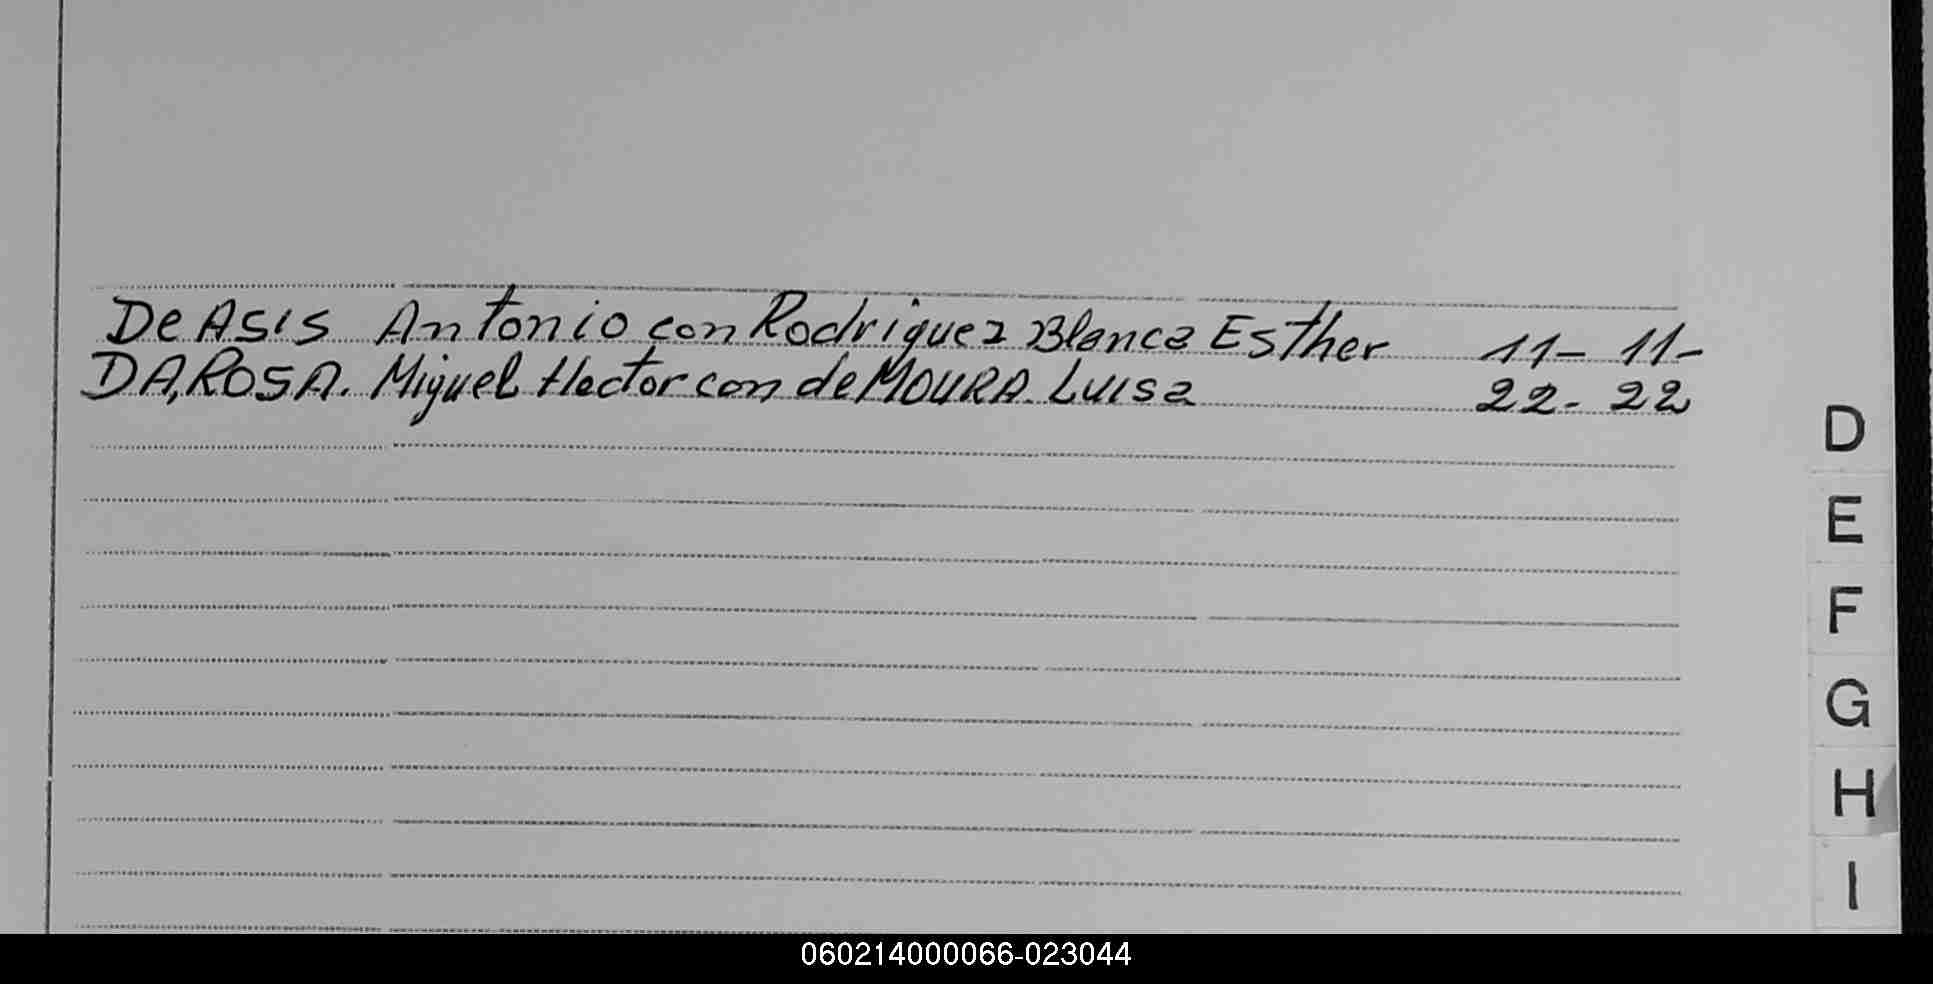 De Asis Antonio con Rodriguez Blanca Esther 11- 11-
DA,ROSA. Miguel Hector con de MOURA. Luisa 22- 22
D
E
F
G
H
I
060214000066-023044